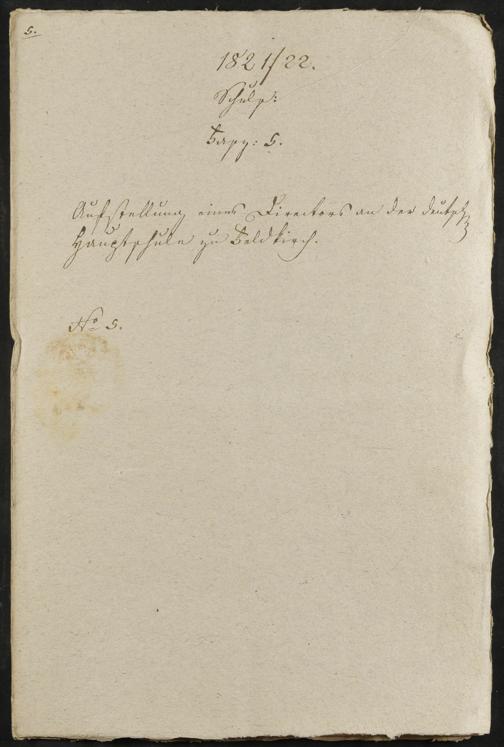 5.
1821/22.
Schulf:
Fasz: 5.
Aufstellung eines Directors an der deutsch
Hauptschule zu Feldkirch.
No 5.